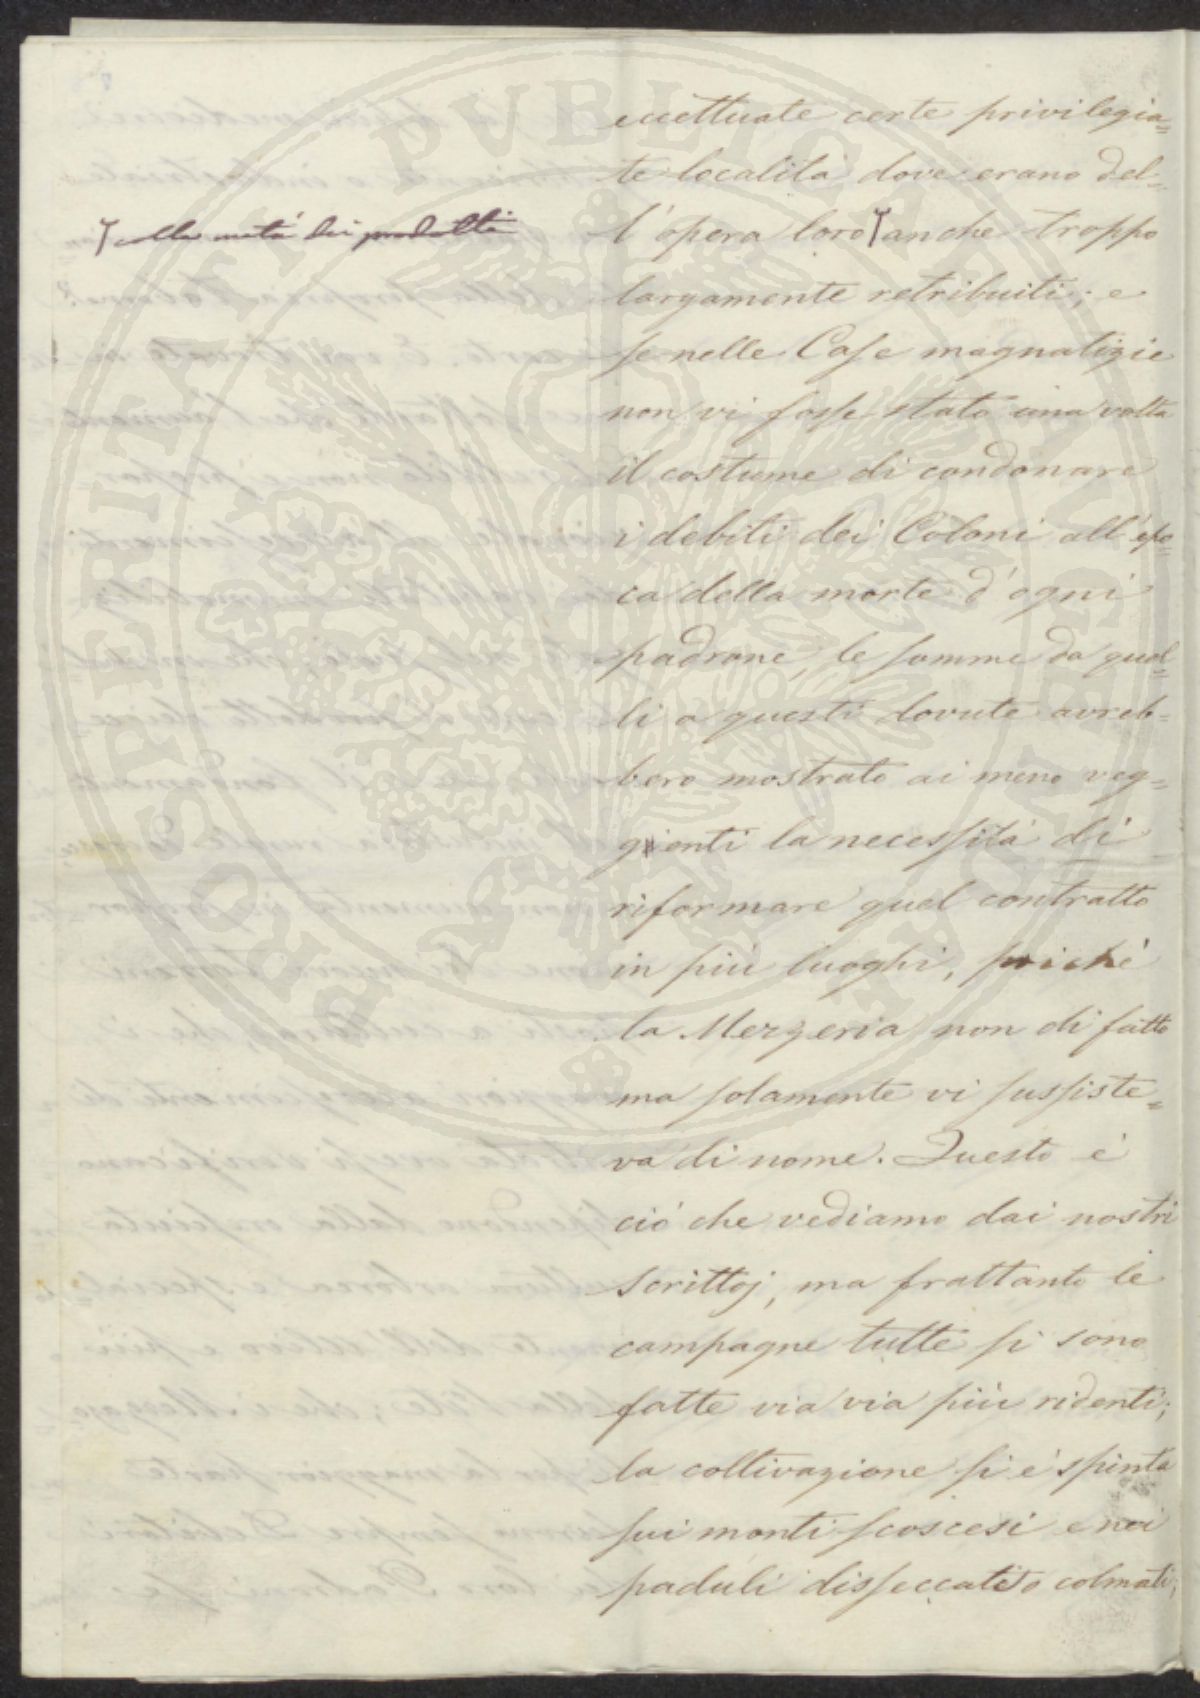 eccettuate certe privilegia=
te località dove erano del=
l'opera loro anche troppo
colla metà dei prodotti
largamente retribuiti; e
se nelle Case magnatizie
non vi fosse stato una volta
il costume di condonare
i debiti dei Coloni all'epo=
ca della morte d'ogni
padrone, le somme da quel=
li a questi dovute avreb=
bero mostrato ai meno veg=
gienti la necessità di
riformare quel contratto
in più luoghi, poichè
la Mezzeria non di fatto
ma solamente vi sussiste=
va di nome. Questo è
ciò che vediamo dai nostri
Scrittoj, ma frattanto le
campagne tutte si sono
fatte via via più ridenti;
la coltivazione si è spinta
sui monti scoscesi e nei
paduli disseccati o colmati;
PROSPERITATI PUBLICAE AUGENDAE